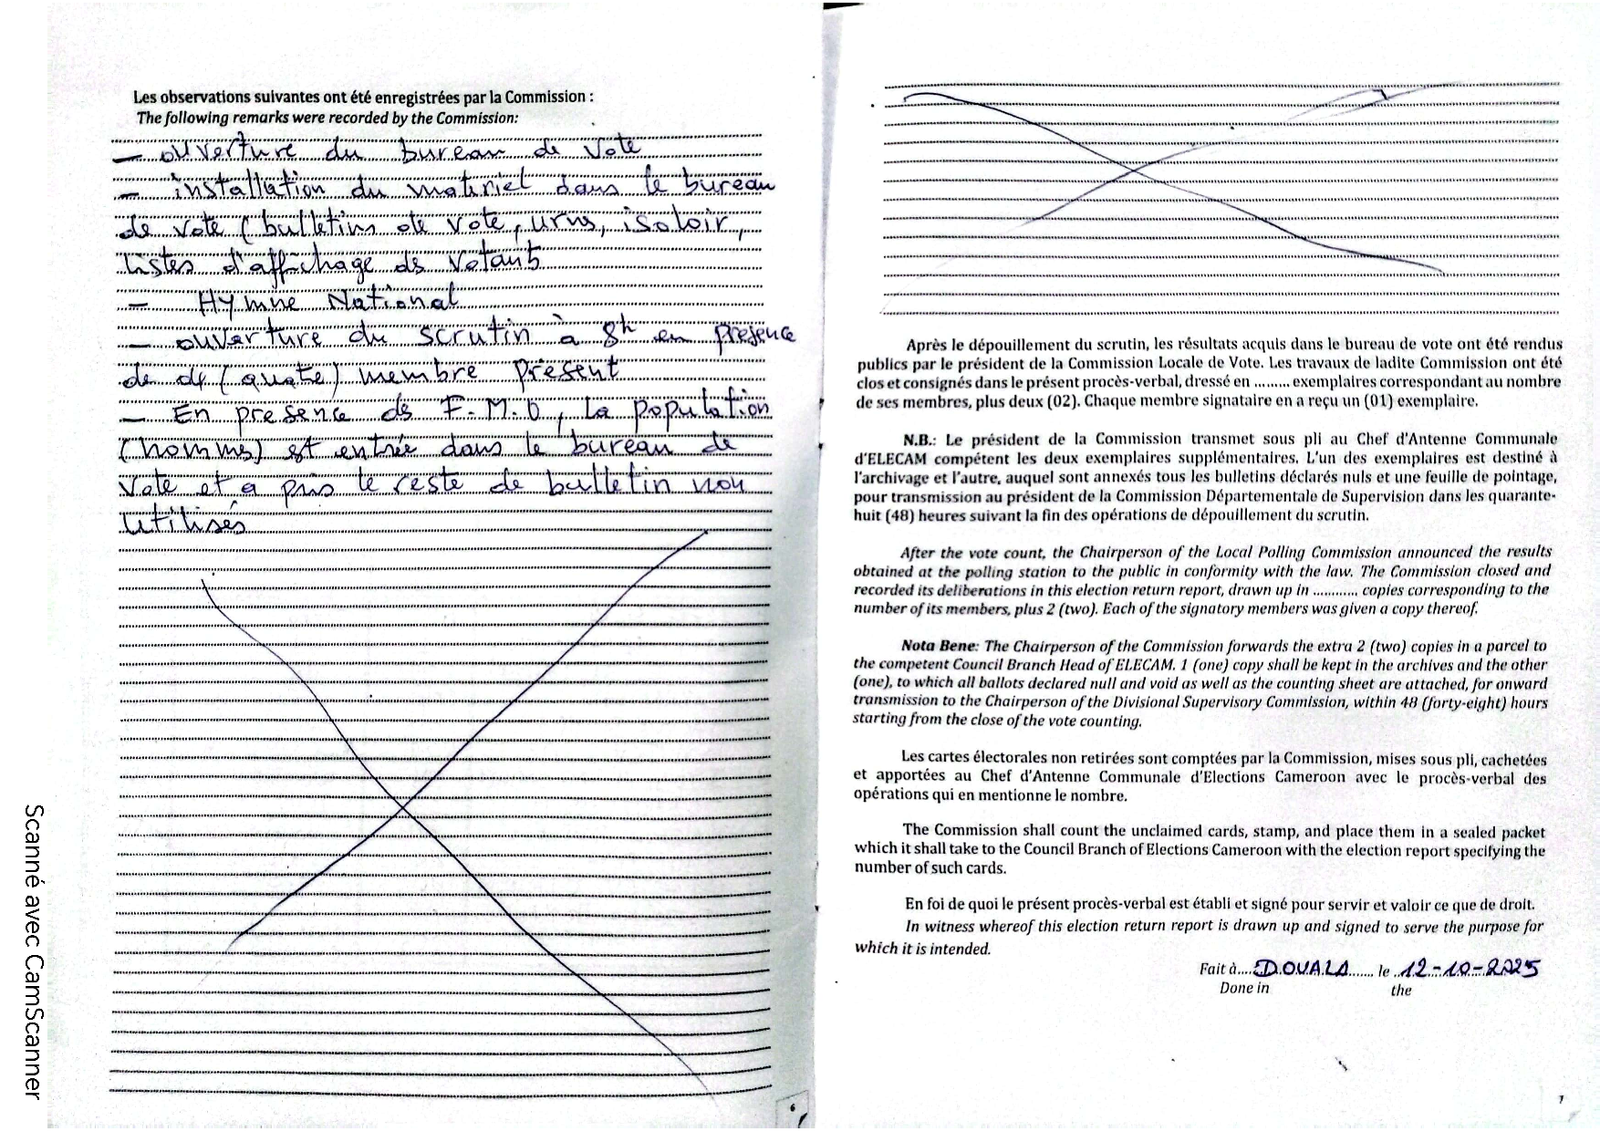 Les observations suivantes ont été enregistrées par la Commission :
The following remarks were recorded by the Commission:
— ouverture du bureau de vote
— installation du matériel dans le bureau
de vote (bulletins de vote, urns, isoloir,
listes d'affichage ds votants
— Hymne National
— ouverture du scrutin à 8h en presence
de 04 (quate) membre présent
— En presence ds F.M.O, La population
(hommes) est entrée dans le bureau de
vote et a pris le reste de bulletin non
utilisés
6
Après le dépouillement du scrutin, les résultats acquis dans le bureau de vote ont été rendus
publics par le président de la Commission Locale de Vote. Les travaux de ladite Commission ont été
clos et consignés dans le présent procès-verbal, dressé en ......... exemplaires correspondant au nombre
de ses membres, plus deux (02). Chaque membre signataire en a reçu un (01) exemplaire.
N.B.: Le président de la Commission transmet sous pli au Chef d'Antenne Communale
d'ELECAM compétent les deux exemplaires supplémentaires. L'un des exemplaires est destiné à
l'archivage et l'autre, auquel sont annexés tous les bulletins déclarés nuls et une feuille de pointage,
pour transmission au président de la Commission Départementale de Supervision dans les quarante-
huit (48) heures suivant la fin des opérations de dépouillement du scrutin.
After the vote count, the Chairperson of the Local Polling Commission announced the results
obtained at the polling station to the public in conformity with the law. The Commission closed and
recorded its deliberations in this election return report, drawn up in ............ copies corresponding to the
number of its members, plus 2 (two). Each of the signatory members was given a copy thereof.
Nota Bene: The Chairperson of the Commission forwards the extra 2 (two) copies in a parcel to
the competent Council Branch Head of ELECAM. 1 (one) copy shall be kept in the archives and the other
(one), to which all ballots declared null and void as well as the counting sheet are attached, for onward
transmission to the Chairperson of the Divisional Supervisory Commission, within 48 (forty-eight) hours
starting from the close of the vote counting.
Les cartes électorales non retirées sont comptées par la Commission, mises sous pli, cachetées
et apportées au Chef d'Antenne Communale d'Elections Cameroon avec le procès-verbal des
opérations qui en mentionne le nombre.
The Commission shall count the unclaimed cards, stamp, and place them in a sealed packet
which it shall take to the Council Branch of Elections Cameroon with the election report specifying the
number of such cards.
En foi de quoi le présent procès-verbal est établi et signé pour servir et valoir ce que de droit.
In witness whereof this election return report is drawn up and signed to serve the purpose for
which it is intended.
Fait à.... DOUALA ....... le 12-10-2025
Done in the
7
Scanné avec CamScanner